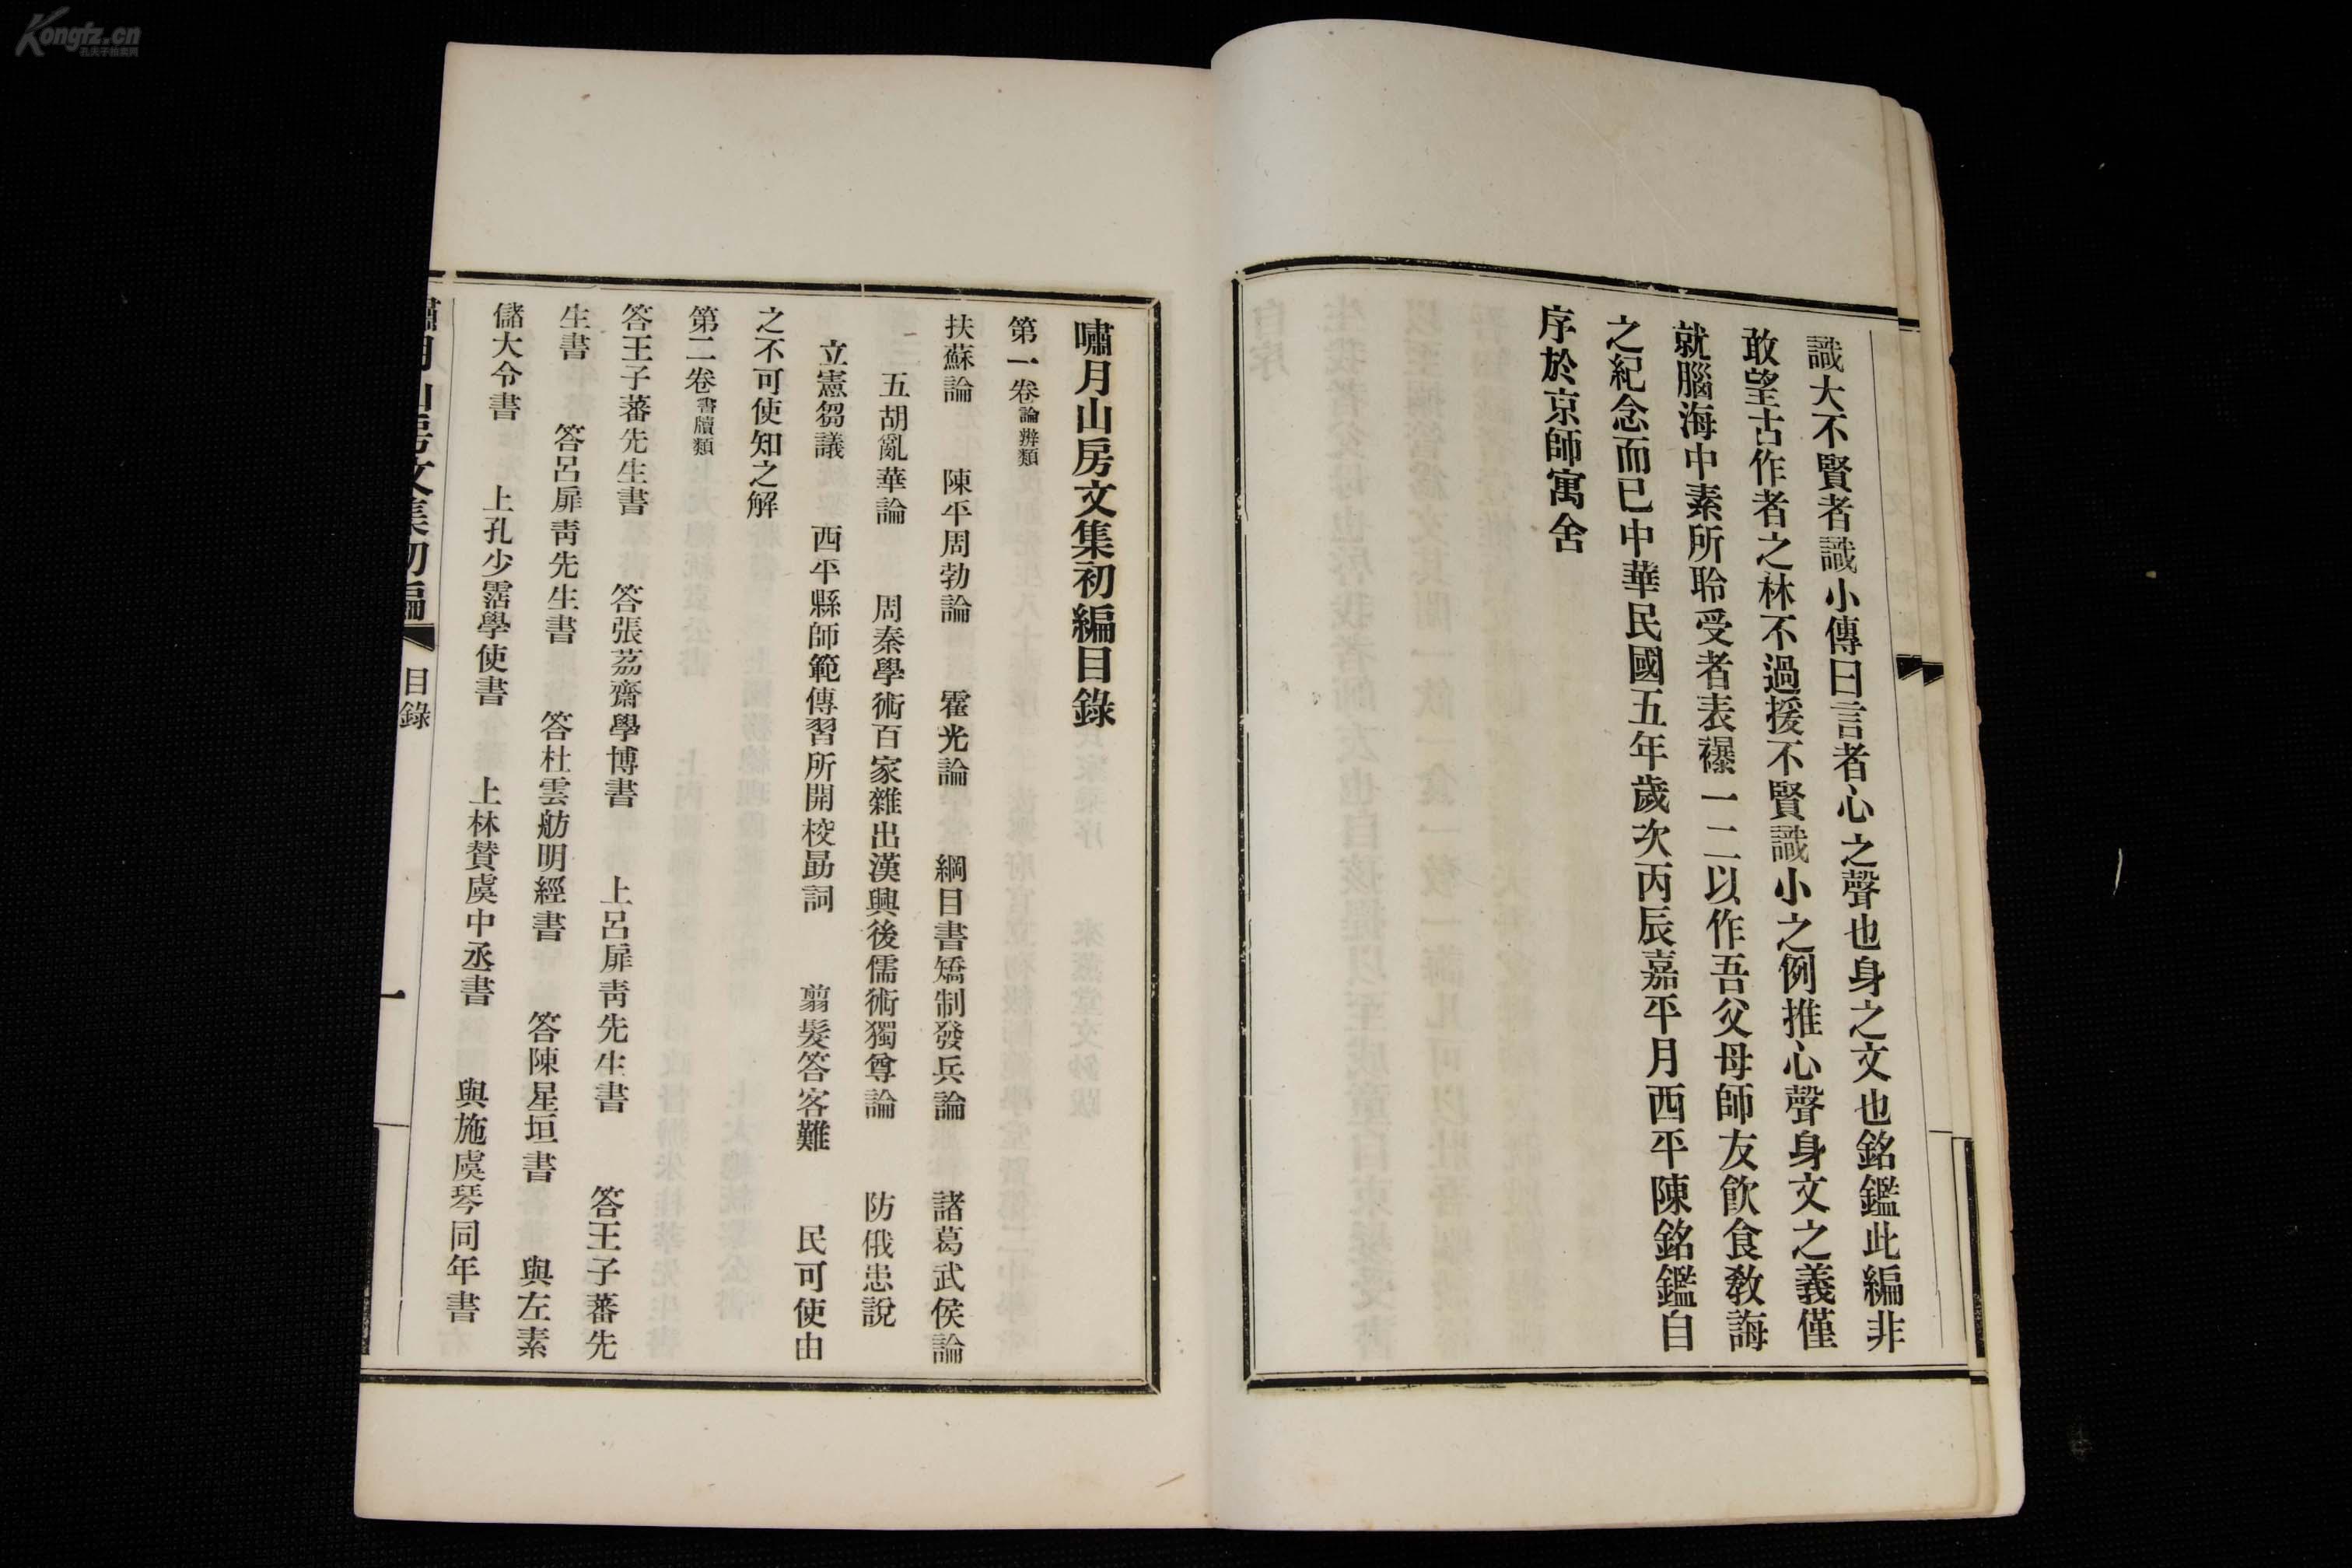 Kongfz.cn
孔夫子拍卖网
識大不賢者識小傳曰言者心之聲也身之文也銘鑑此編非
敢望古作者之林不過援不賢識小之例推心聲身文之義僅
就腦海中素所聆受者表襮一二以作吾父母師友飲食教誨
之紀念而已中華民國五年歲次丙辰嘉平月西平陳銘鑑自
序於京師寓舍
嘯月山房文集初編目錄
第一卷論辨類
扶蘇論 陳平周勃論 霍光論 綱目書矯制發兵論 諸葛武侯論
五胡亂華論 周秦學術百家雜出漢興後儒術獨尊論 防俄患說
立憲芻議 西平縣師範傳習所開校勗詞 翦髮答客難 民可使由
之不可使知之解
第二卷書牘類
答王子蕃先生書 答張荔齋學博書 上呂扉青先生書 答王子蕃先
生書 答呂扉青先生書 答杜雲舫明經書 答陳星垣書 與左素
儲大令書 上孔少霑學使書 上林贊虞中丞書 與施虞琴同年書
嘯月山房文集初編 目錄 一